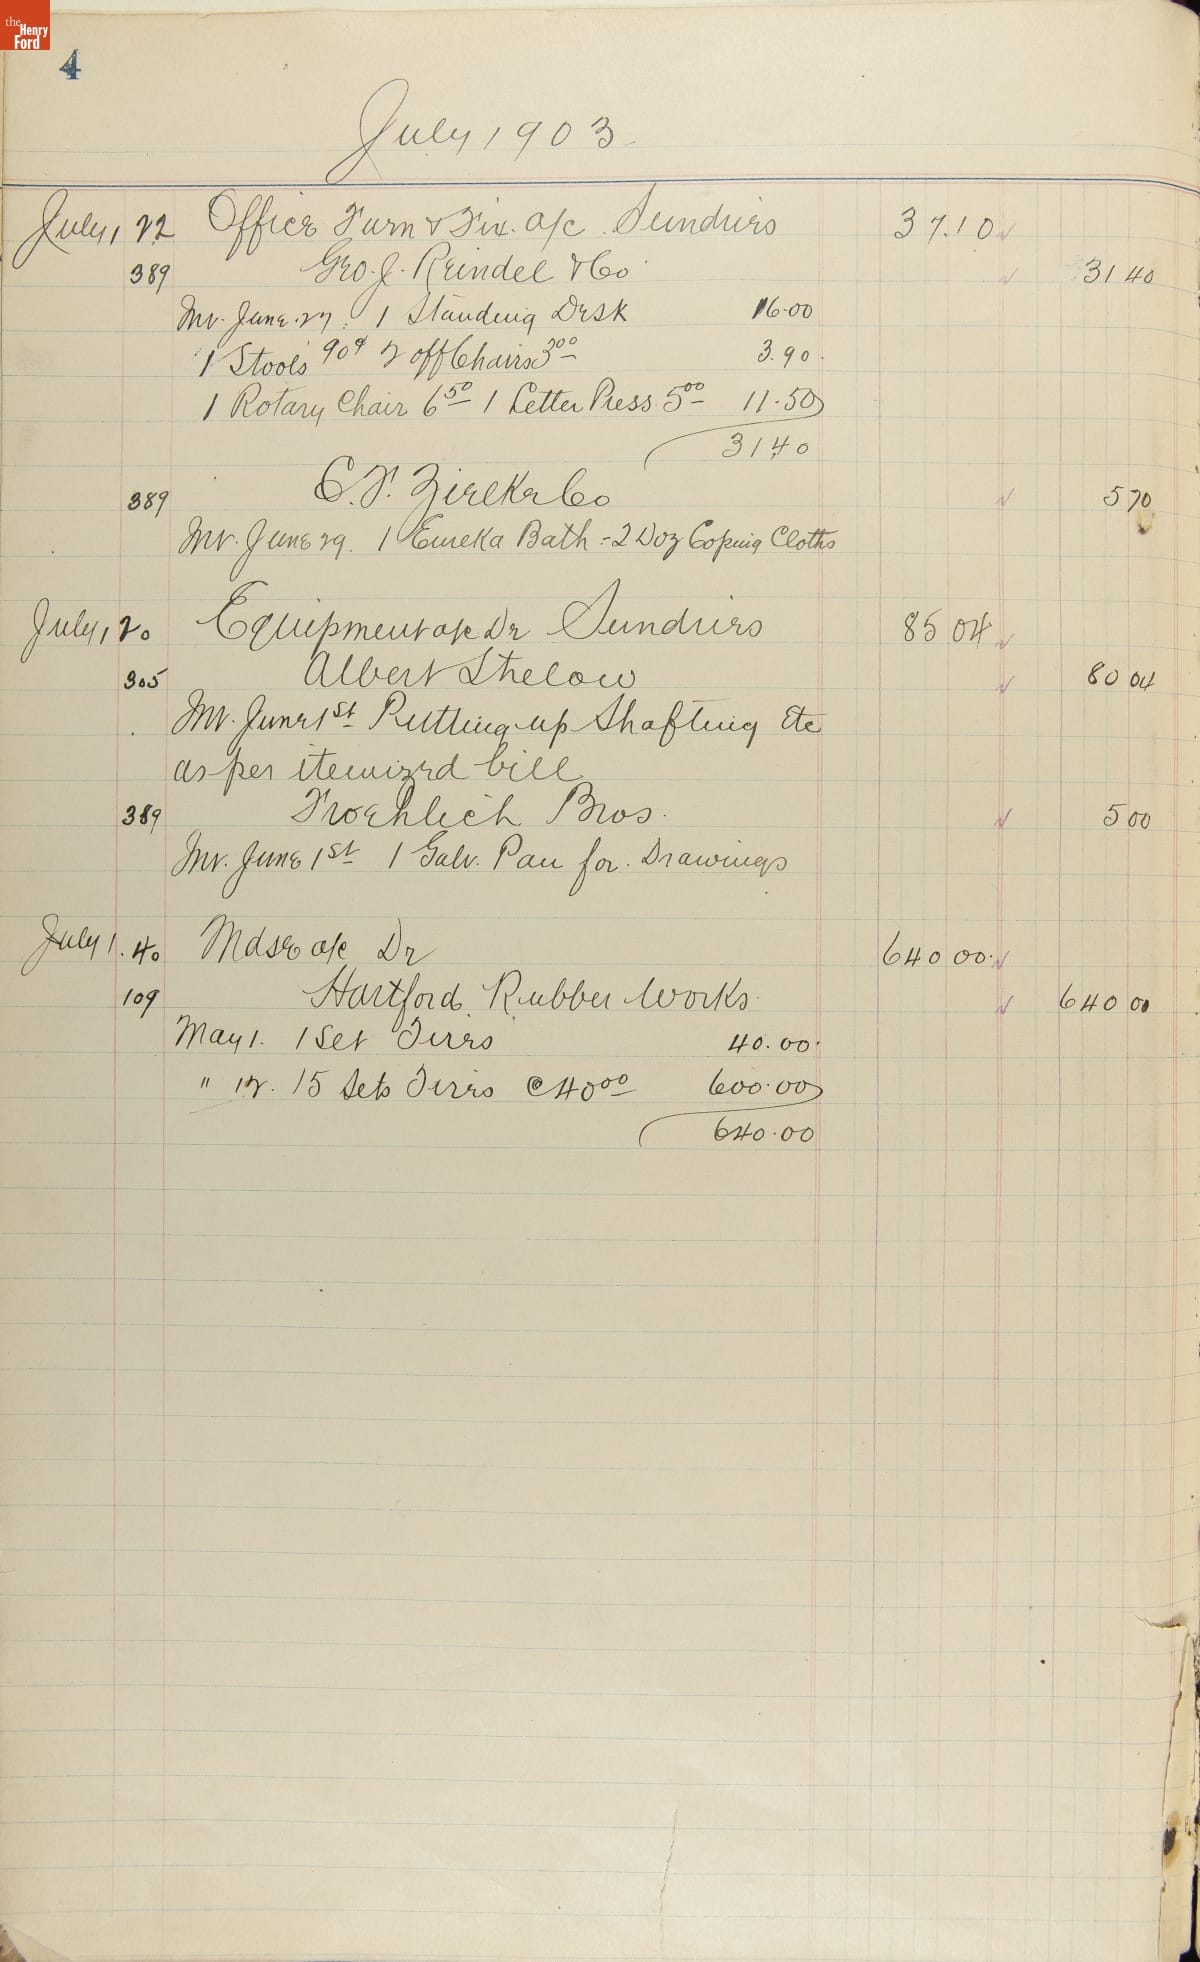 the Henry Ford
4
July 1903
July 1 22 Office Furn & Fix. a/c Sundries 37.10
389 Geo. J. Reindel & Co 31 40
Inv. June 27. 1 Standing Desk 16.00
1 Stools 90¢ 2 off Chairs 3 00 3.90
1 Rotary Chair 6 50 1 Letter Press 5 00 11.50
31 40
389 C. F. Zielke & Co 5 70
Inv. June 29. 1 Eureka Bath - 2 Doz Coping Cloths
July 1 20 Equipment a/c Dr Sundries 85 04
305 Albert Strelow 80 04
Inv. June 1st Putting up Shafting Etc
as per itemized bill
389 Froehlich Bros. 5 00
Inv. June 1st 1 Galv. Pan for Drawings
July 1. 40 Mdse a/c Dr 640 00
109 Hartford Rubber Works 640 00
May 1. 1 Set Tires 40.00
" 12. 15 Sets Tires @ 40 00 600.00
640.00